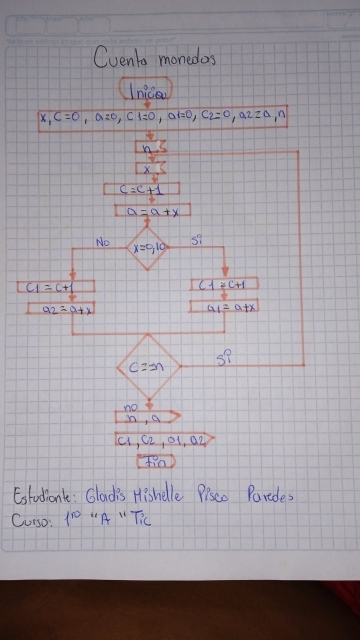 Cuenta monedas
Inicio
x, C=0, a=0, C1=0, a1=0, C2=0, a2=a, n
n
x
C=C+1
a=a+x
x=0,10
No
Si
C1=C+1
C1=C+1
a2=a+x
a1=a+x
Si
no
n, a
C1, C2, a1, a2
Fin
Estudiante: Gladis Mishelle Pisco Paredes
Curso: 1ro "A" Tic